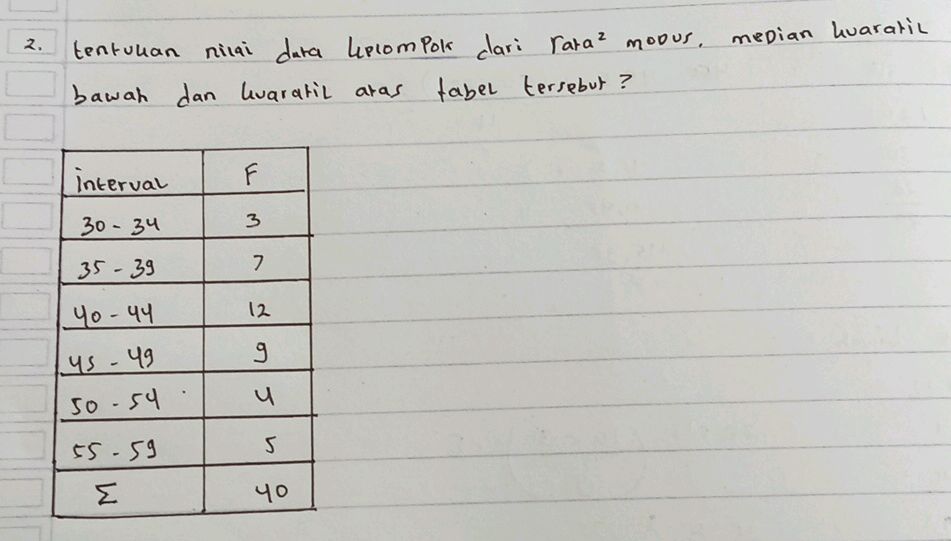 2. tentukan nilai data kelompok dari rata² modus, median kuaratil
bawah dan kuaratil atas tabel tersebut?
interval F
30 - 34 3
35 - 39 7
40 - 44 12
45 - 49 9
50 - 54 4
55 - 59 5
Σ 40